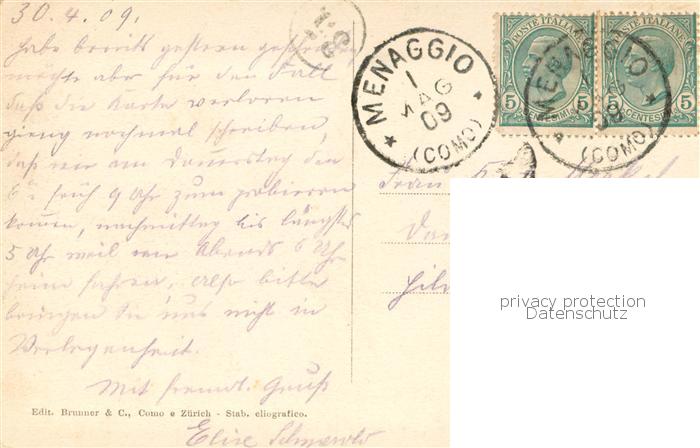 30.4.09.
Habe bereits gestern geschrieben
möchte aber für den Fall
daß die Karte verloren
gieng nochmal schreiben,
daß wir am Donerstag den
6t früh 9 Uhr zum probieren
kommen, nachmittag bis längstens
5 Uhr weil wir Abends 6 Uhr
heim fahren, also bitte
bringen Sie uns nicht in
Verlegenheit.
Mit freundl. Gruß
Elise
Edit. Brunner & C., Como e Zürich - Stab. eliografico.
MENAGGIO
1
MAG
09
(COMO)
POSTE ITALIANE
5 CENTESIMI 5
POSTE ITALIANE
5 CENTESIMI 5
MENAGGIO
09
(COMO)
Frau
privacy protection
Datenschutz